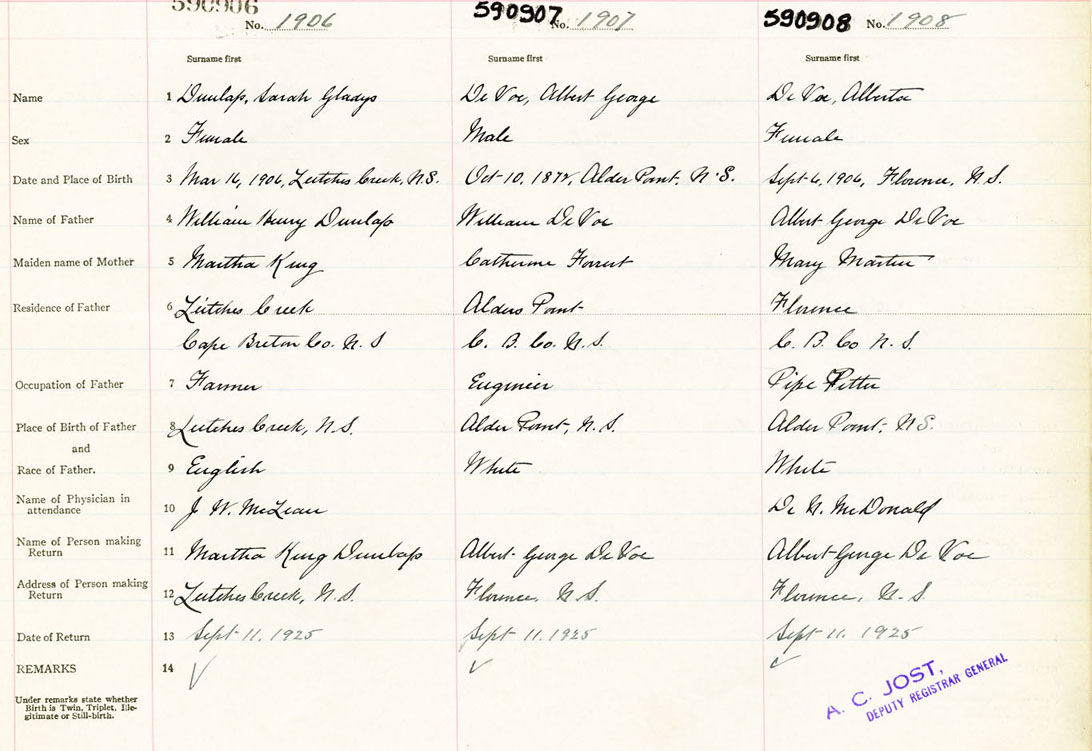 590906 590907 590908
No. 1906 No. 1907 No. 1908
Surname first Surname first Surname first
Name 1 Dunlap, Sarah Gladys De Voe, Albert George De Voe, Alberta
Sex 2 Female Male Female
Date and Place of Birth 3 Mar 16, 1906, Leitches Creek, N.S. Oct 10, Alder Point, N.S. Sept 6, 1906, Florence, N.S.
Name of Father 4 William Henry Dunlap William De Voe Albert George De Voe
Maiden name of Mother 5 Martha King Catherine Forrest Mary Martin
Residence of Father 6 Leitches Creek Alders Point Florence
Cape Breton Co. N.S C. B. Co. N.S. C. B. Co N.S.
Occupation of Father 7 Farmer Engineer Pipe Fitter
Place of Birth of Father 8 Leitches Creek, N.S. Alder Point, N.S. Alder Point, N.S.
and
Race of Father. 9 English White White
Name of Physician in
attendance 10 J W. McLean Dr N. McDonald
Name of Person making
Return 11 Martha King Dunlap Albert George De Voe Albert George De Voe
Address of Person making
Return 12 Leitches Creek, N.S. Florence, N.S. Florence, N.S.
Date of Return 13 Sept 11, 1925 Sept 11, 1925 Sept 11, 1925
REMARKS 14
Under remarks state whether
Birth is Twin, Triplet, Ille-
gitimate or Still-birth.
A. C. JOST,
DEPUTY REGISTRAR GENERAL